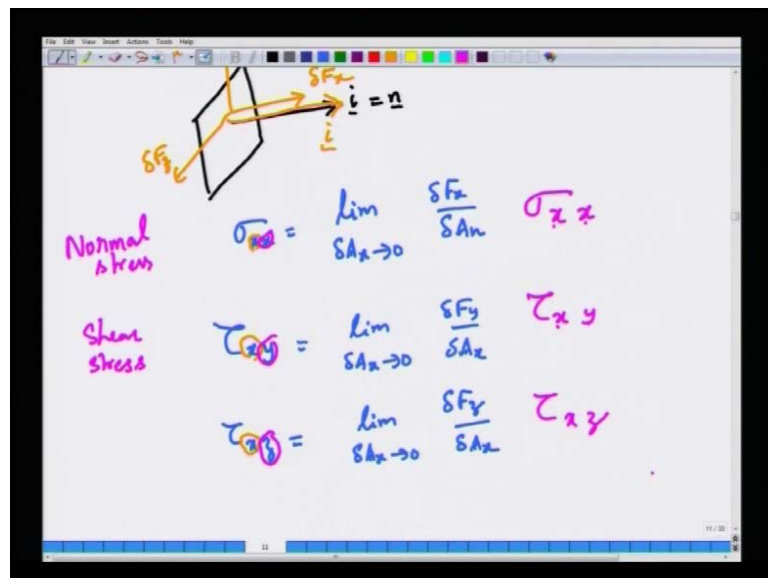 File Edit View Insert Actions Tools Help
δFx
i = n
i
δFz
Normal stress
σxx = lim δAx→0 δFx/δAn
σx x
Shear stress
τxy = lim δAx→0 δFy/δAx
τx y
τxz = lim δAx→0 δFz/δAx
τxz
11 / 33
11